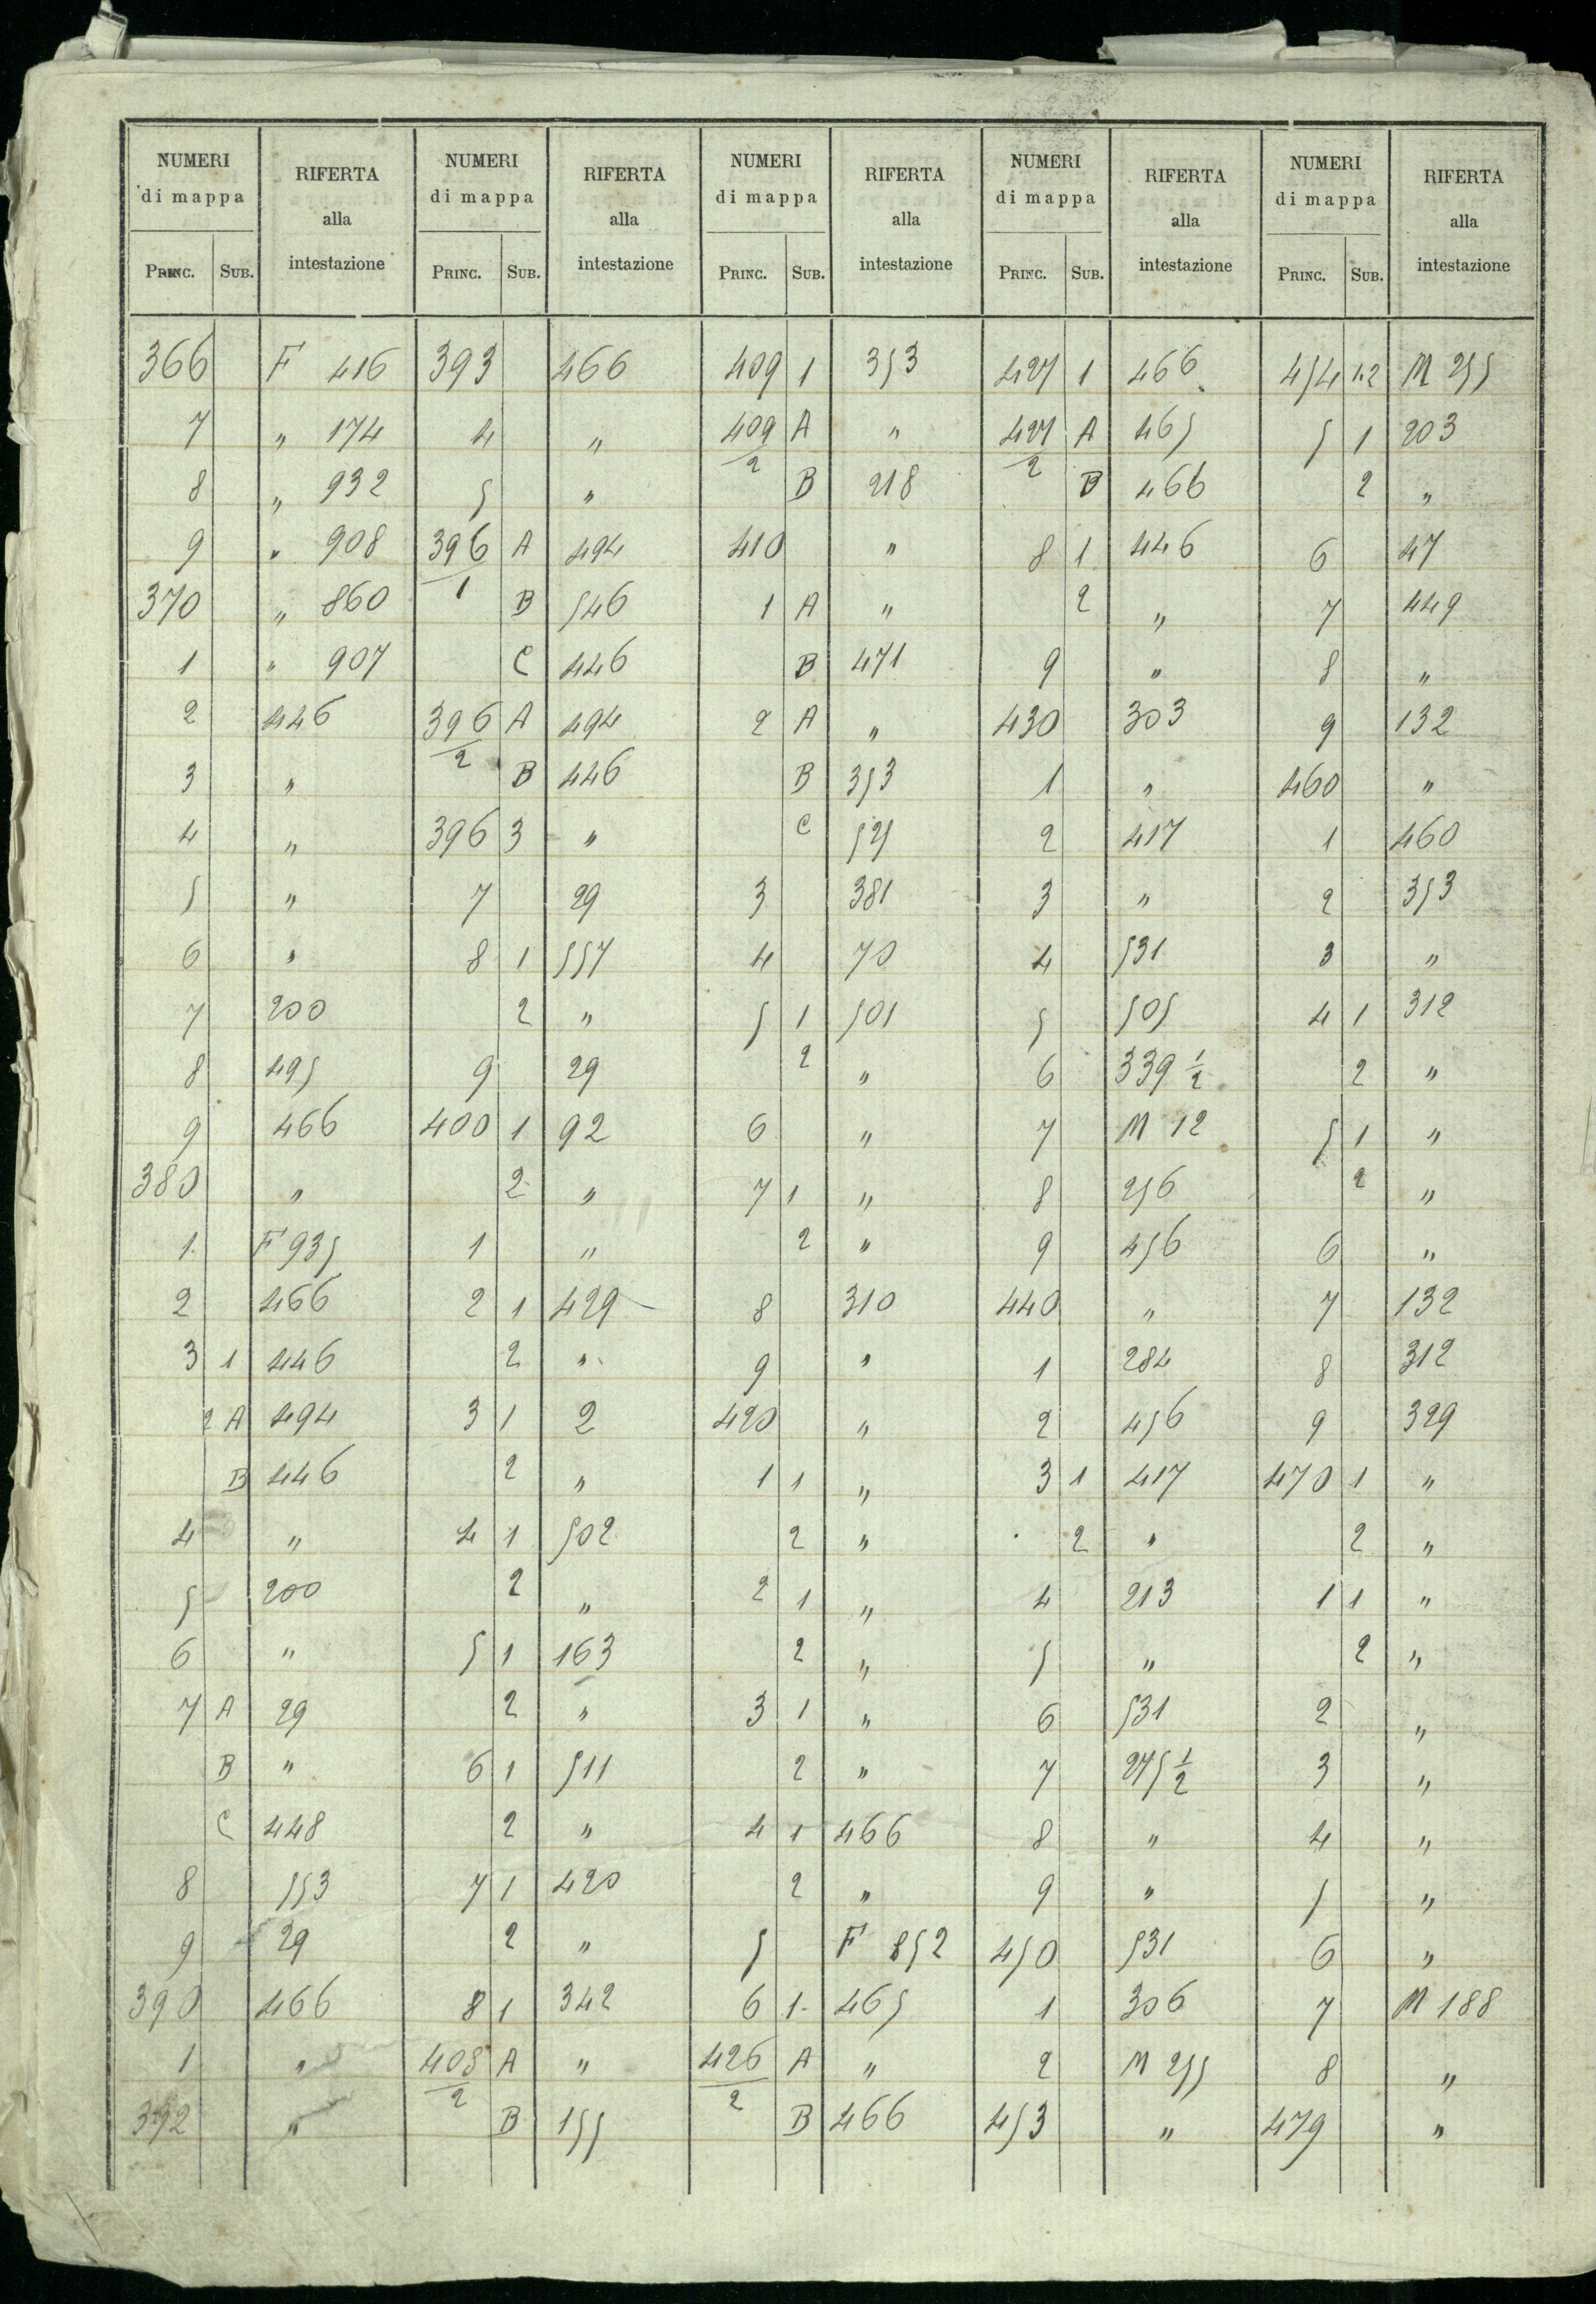 NUMERI di mappa | RIFERTA alla intestazione | NUMERI di mappa | RIFERTA alla intestazione | NUMERI di mappa | RIFERTA alla intestazione | NUMERI di mappa | RIFERTA alla intestazione | NUMERI di mappa | RIFERTA alla intestazione
PRINC. | SUB. | PRINC. | SUB. | PRINC. | SUB. | PRINC. | SUB. | PRINC. | SUB.
366 | | F 416 | 393 | | 466 | 409 | 1 | 353 | 427 | 1 | 466 | 454 | 1.2 | M 255
7 | | „ 174 | 4 | | „ | 409/2 | A | „ | 427/2 | A | 465 | 5 | 1 | 203
8 | | „ 932 | 5 | | „ | | B | 218 | | B | 466 | | 2 | „
9 | | „ 908 | 396/1 | A | 494 | 410 | | „ | 8 | 1 | 446 | 6 | | 47
370 | | „ 860 | | B | 546 | 1 | A | „ | | 2 | „ | 7 | | 449
1 | | „ 907 | | C | 446 | | B | 471 | 9 | | „ | 8 | | „
2 | | 446 | 396/2 | A | 494 | 2 | A | „ | 430 | | 303 | 9 | | 132
3 | | „ | | B | 446 | | B | 353 | 1 | | „ | 460 | | „
4 | | „ | 396 | 3 | „ | | C | 525 | 2 | | 417 | 1 | | 460
5 | | „ | 7 | | 29 | 3 | | 381 | 3 | | „ | 2 | | 353
6 | | „ | 8 | 1 | 557 | 4 | | 70 | 4 | | 531 | 3 | | „
7 | | 200 | | 2 | „ | 5 | 1 | 501 | 5 | | 505 | 4 | 1 | 312
8 | | 495 | 9 | | 29 | | 2 | „ | 6 | | 339 1/2 | | 2 | „
9 | | 466 | 400 | 1 | 92 | 6 | | „ | 7 | | M 12 | 5 | 1 | „
380 | | „ | | 2 | „ | 7 | 1 | „ | 8 | | 256 | | 2 | „
1 | | F 935 | 1 | | „ | | 2 | „ | 9 | | 456 | 6 | | „
2 | | 466 | 2 | 1 | 429 | 8 | | 310 | 440 | | „ | 7 | | 132
3 | 1 | 446 | | 2 | „ | 9 | | „ | 1 | | 284 | 8 | | 312
| 2 A | 494 | 3 | 1 | 2 | 420 | | „ | 2 | | 456 | 9 | | 329
| B | 446 | | 2 | „ | 1 | 1 | „ | 3 | 1 | 417 | 470 | 1 | „
4 | | „ | 4 | 1 | 502 | | 2 | „ | | 2 | „ | | 2 | „
5 | | 200 | | 2 | „ | 2 | 1 | „ | 4 | | 213 | 1 | 1 | „
6 | | „ | 5 | 1 | 163 | | 2 | „ | 5 | | „ | | 2 | „
7 | A | 29 | | 2 | „ | 3 | 1 | „ | 6 | | 531 | 2 | | „
| B | „ | 6 | 1 | 511 | | 2 | „ | 7 | | 275 1/2 | 3 | | „
| C | 448 | | 2 | „ | 4 | 1 | 466 | 8 | | „ | 4 | | „
8 | | 553 | 7 | 1 | 420 | | 2 | „ | 9 | | „ | 5 | | „
9 | | 29 | | 2 | „ | 5 | | F 852 | 450 | | 531 | 6 | | „
390 | | 466 | 8 | 1 | 342 | 6 | 1 | 465 | 1 | | 306 | 7 | | M 188
1 | | „ | 408/2 | A | „ | 426/2 | A | „ | 2 | | M 255 | 8 | | „
392 | | „ | | B | 155 | | B | 466 | 453 | | „ | 479 | | „